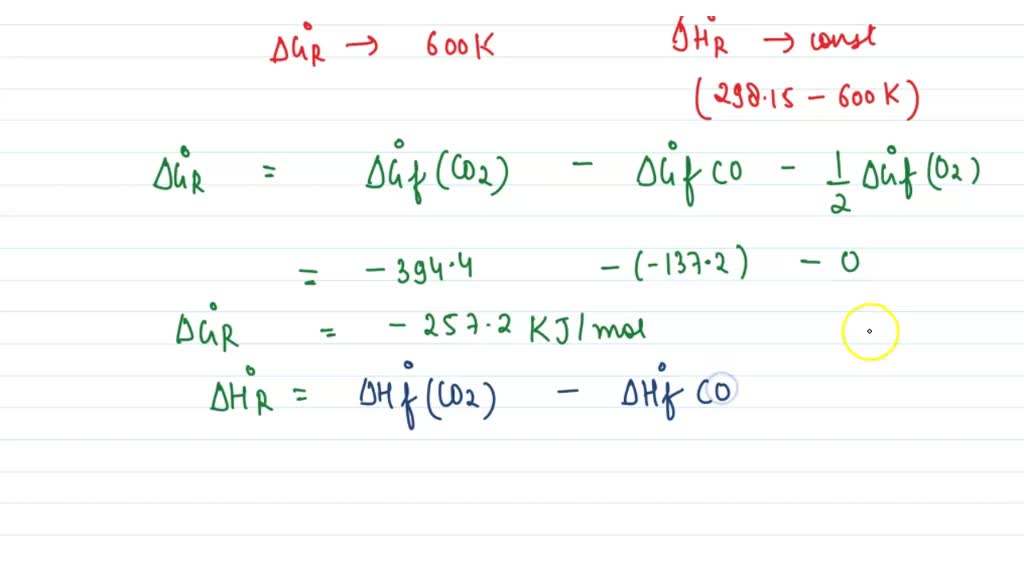 ΔG°R → 600K ΔH°R → const
(298.15 - 600K)
ΔG°R = ΔG°f(CO2) - ΔG°f CO - 1/2 ΔG°f(O2)
= - 394.4 - (-137.2) - 0
ΔG°R = - 257.2 KJ/mol
ΔH°R = ΔH°f(CO2) - ΔH°f CO